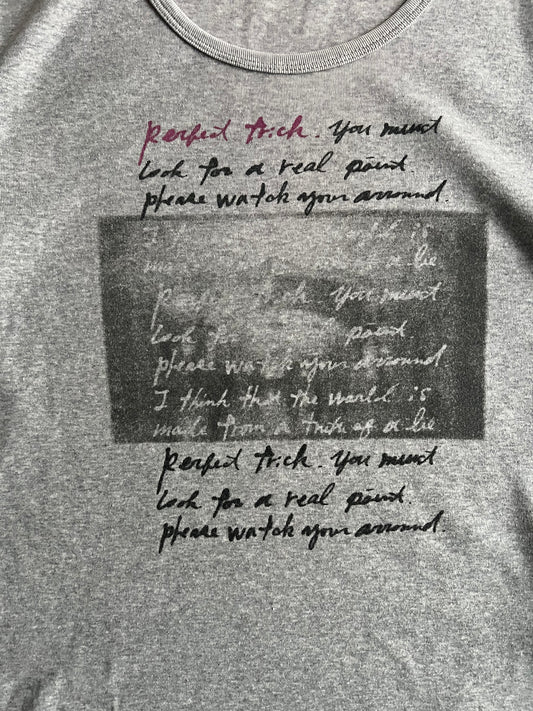 perfect trick. You must
look for a real point.
please watch your arround.
I is
a lie
perfect trick. You must
look for point.
please watch your arround
I think that the world is
made from a trick of a lie
perfect trick. You must
look for a real point.
please watch your arround.